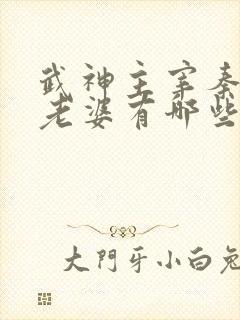 武神主宰秦
老婆有哪些
大門牙小白兔